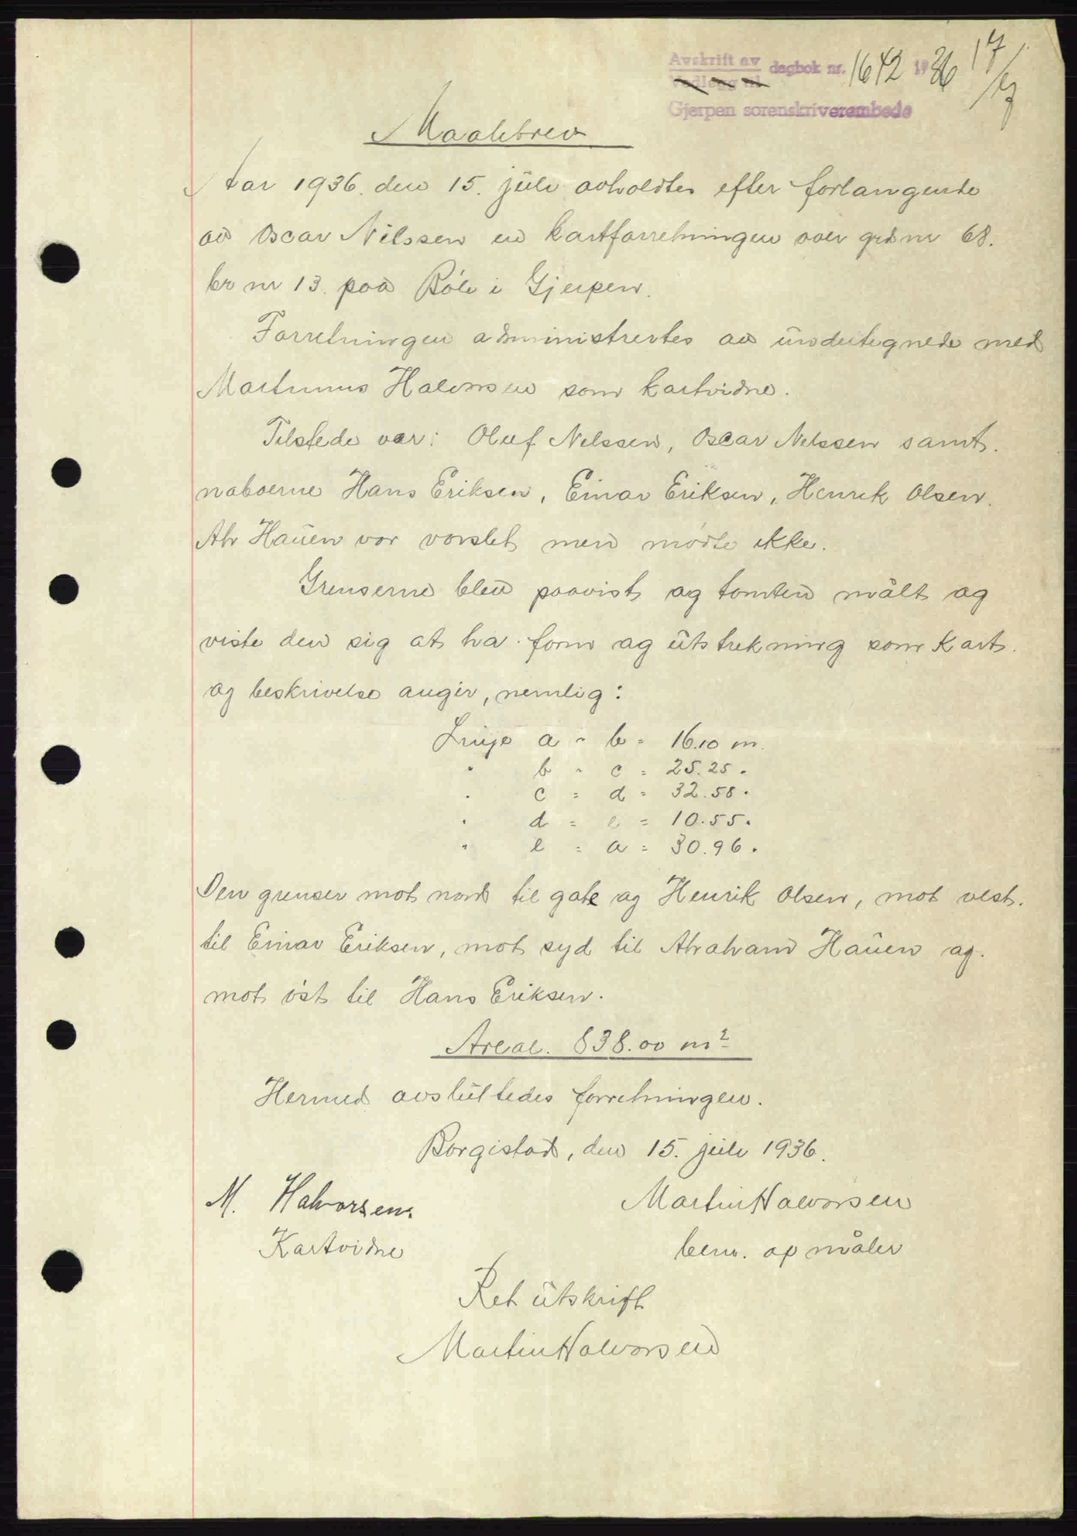 Avskrift av dagbok nr. 1642 1936 17/7
Vedlegg til
Gjerpen sorenskriverembede
Maalebrev
Aar 1936. den 15. juli avholdtes efter forlangende
av Oscar Nilssen en kartforretningen over grdnr 68.
br nr 13. paa Böle i Gjerpen.
Forretningen administrertes av undertegnede med
Martinus Halvorsen som kartvidne.
Tilstede var: Oluf Nilssen, Oscar Nilssen samt.
naboerne Hans Eriksen, Einar Eriksen, Henrik Olsen.
Abr Hauen var varslet men mødte ikke.
Grenserne blev paavist og tomten målt og
viste den sig at ha form og utstrekning som Kart.
og beskrivelse angir, nemlig:
Linje a - b = 16.10 m.
" b - c = 25.25.
" c = d = 32.58.
" d = e = 10.55.
" e = a = 30.96.
Den grenser mot nord til gate og Henrik Olsen, mot vest.
til Einar Eriksen, mot syd til Abraham Hauen og.
mot øst til Hans Eriksen.
Areal. 838.00 m²
Hermed avsluttedes forretningen.
Borgestad, den 15. juli 1936.
M. Halvorsen. Martin Halvorsen
Kartvidne bem. opmåler
Ret utskrift
Martin Halvorsen